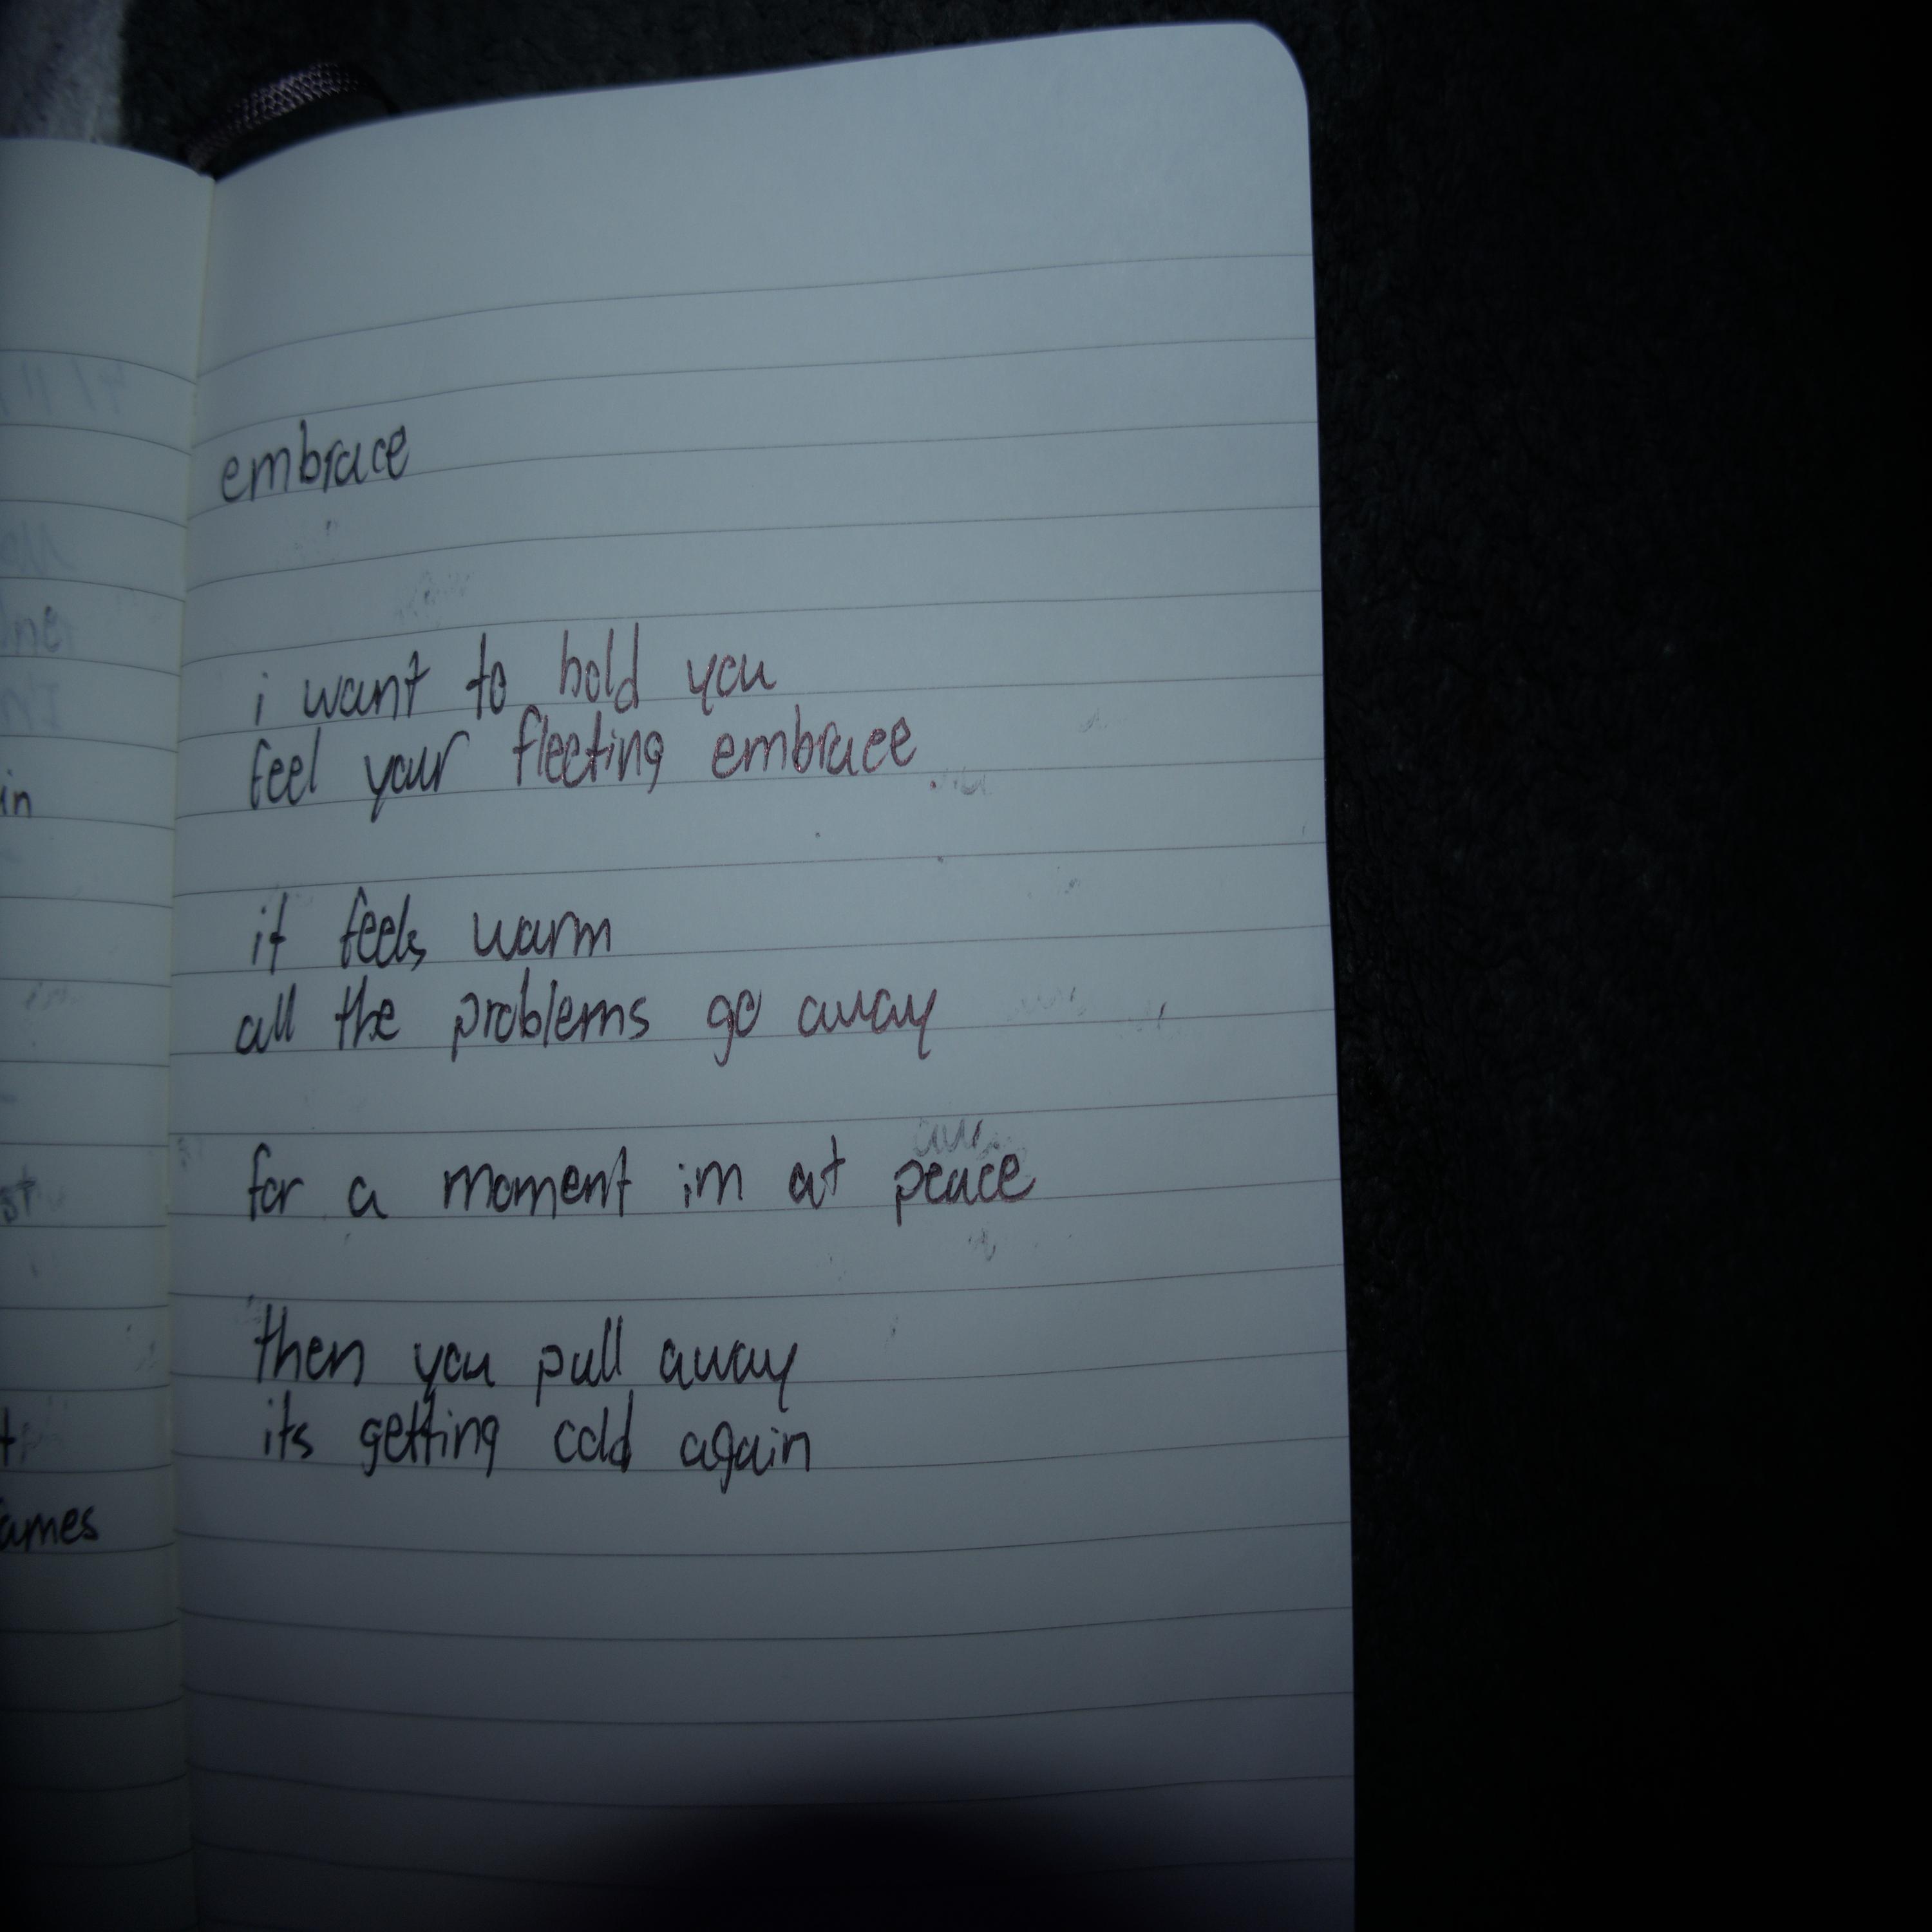 embrace
i want to hold you
feel your fleeting embrace
it feels warm
all the problems go away
for a moment im at peace
then you pull away
its getting cold again
in
ames